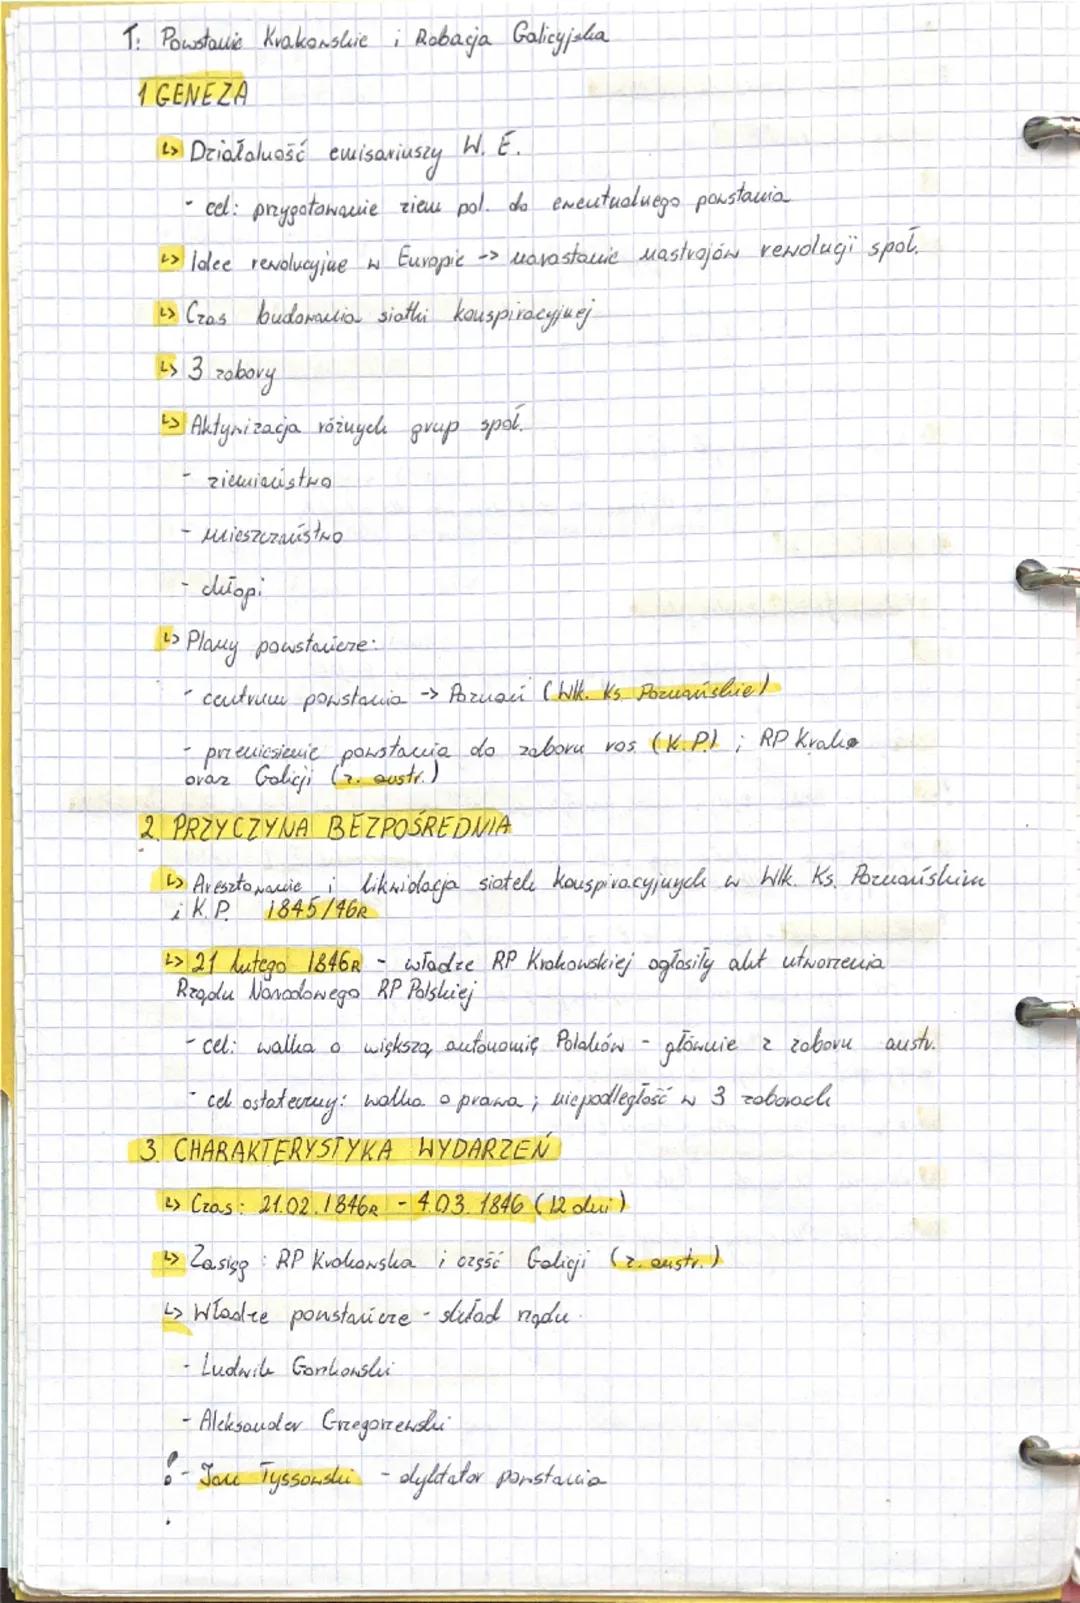 T: Powstanie Krakowskie i Rabacja Galicyjska
1 GENEZA
↳ Działalność emisariuszy W. E.
- cel: przygotowanie ziem pol. do ewentualnego powstania
↳ Idee rewolucyjne w Europie -> narastanie nastrojów rewolucji społ.
↳ Czas budowania siatki konspiracyjnej
↳ 3 zabory
↳ Aktywizacja różnych grup społ.
- ziemiaństwo
- mieszczaństwo
- chłopi
↳ Plany powstańcze:
- centrum powstania -> Poznań (Wlk. Ks. Poznańskie)
- przeniesienie powstania do zaboru ros. (K.P.) ; RP Krako
oraz Galicji (z. austr.)
2. PRZYCZYNA BEZPOŚREDNIA
↳ Aresztowanie i likwidacja siatek konspiracyjnych w Wlk. Ks. Poznańskim
i K.P. 1845/46R
↳ 21 lutego 1846R - władze RP Krakowskiej ogłosiły akt utworzenia
Rządu Narodowego RP Polskiej
- cel: walka o większą autonomię Polaków - głównie z zaboru austr.
- cel ostateczny: walka o prawa ; niepodległość w 3 zaborach
3. CHARAKTERYSTYKA WYDARZEŃ
↳ Czas: 21.02.1846R - 4.03.1846 (12 dni)
↳ Zasięg: RP Krakowska i część Galicji (z. austr.)
↳ Władze powstańcze - skład rządu
- Ludwik Gorzkowski
- Aleksander Grzegorzewski
! - Jan Tyssowski - dyktator powstania